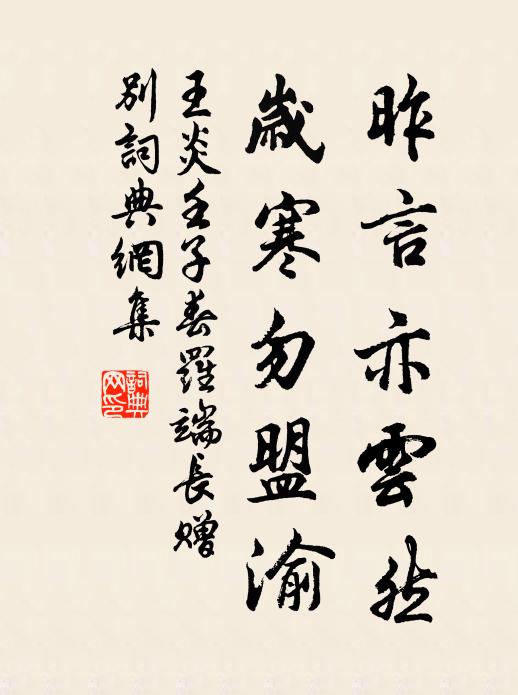 昨言亦雲然
歲寒勿盟渝
王炎壬子春羅端長贈
別詞典網集
詞典網印